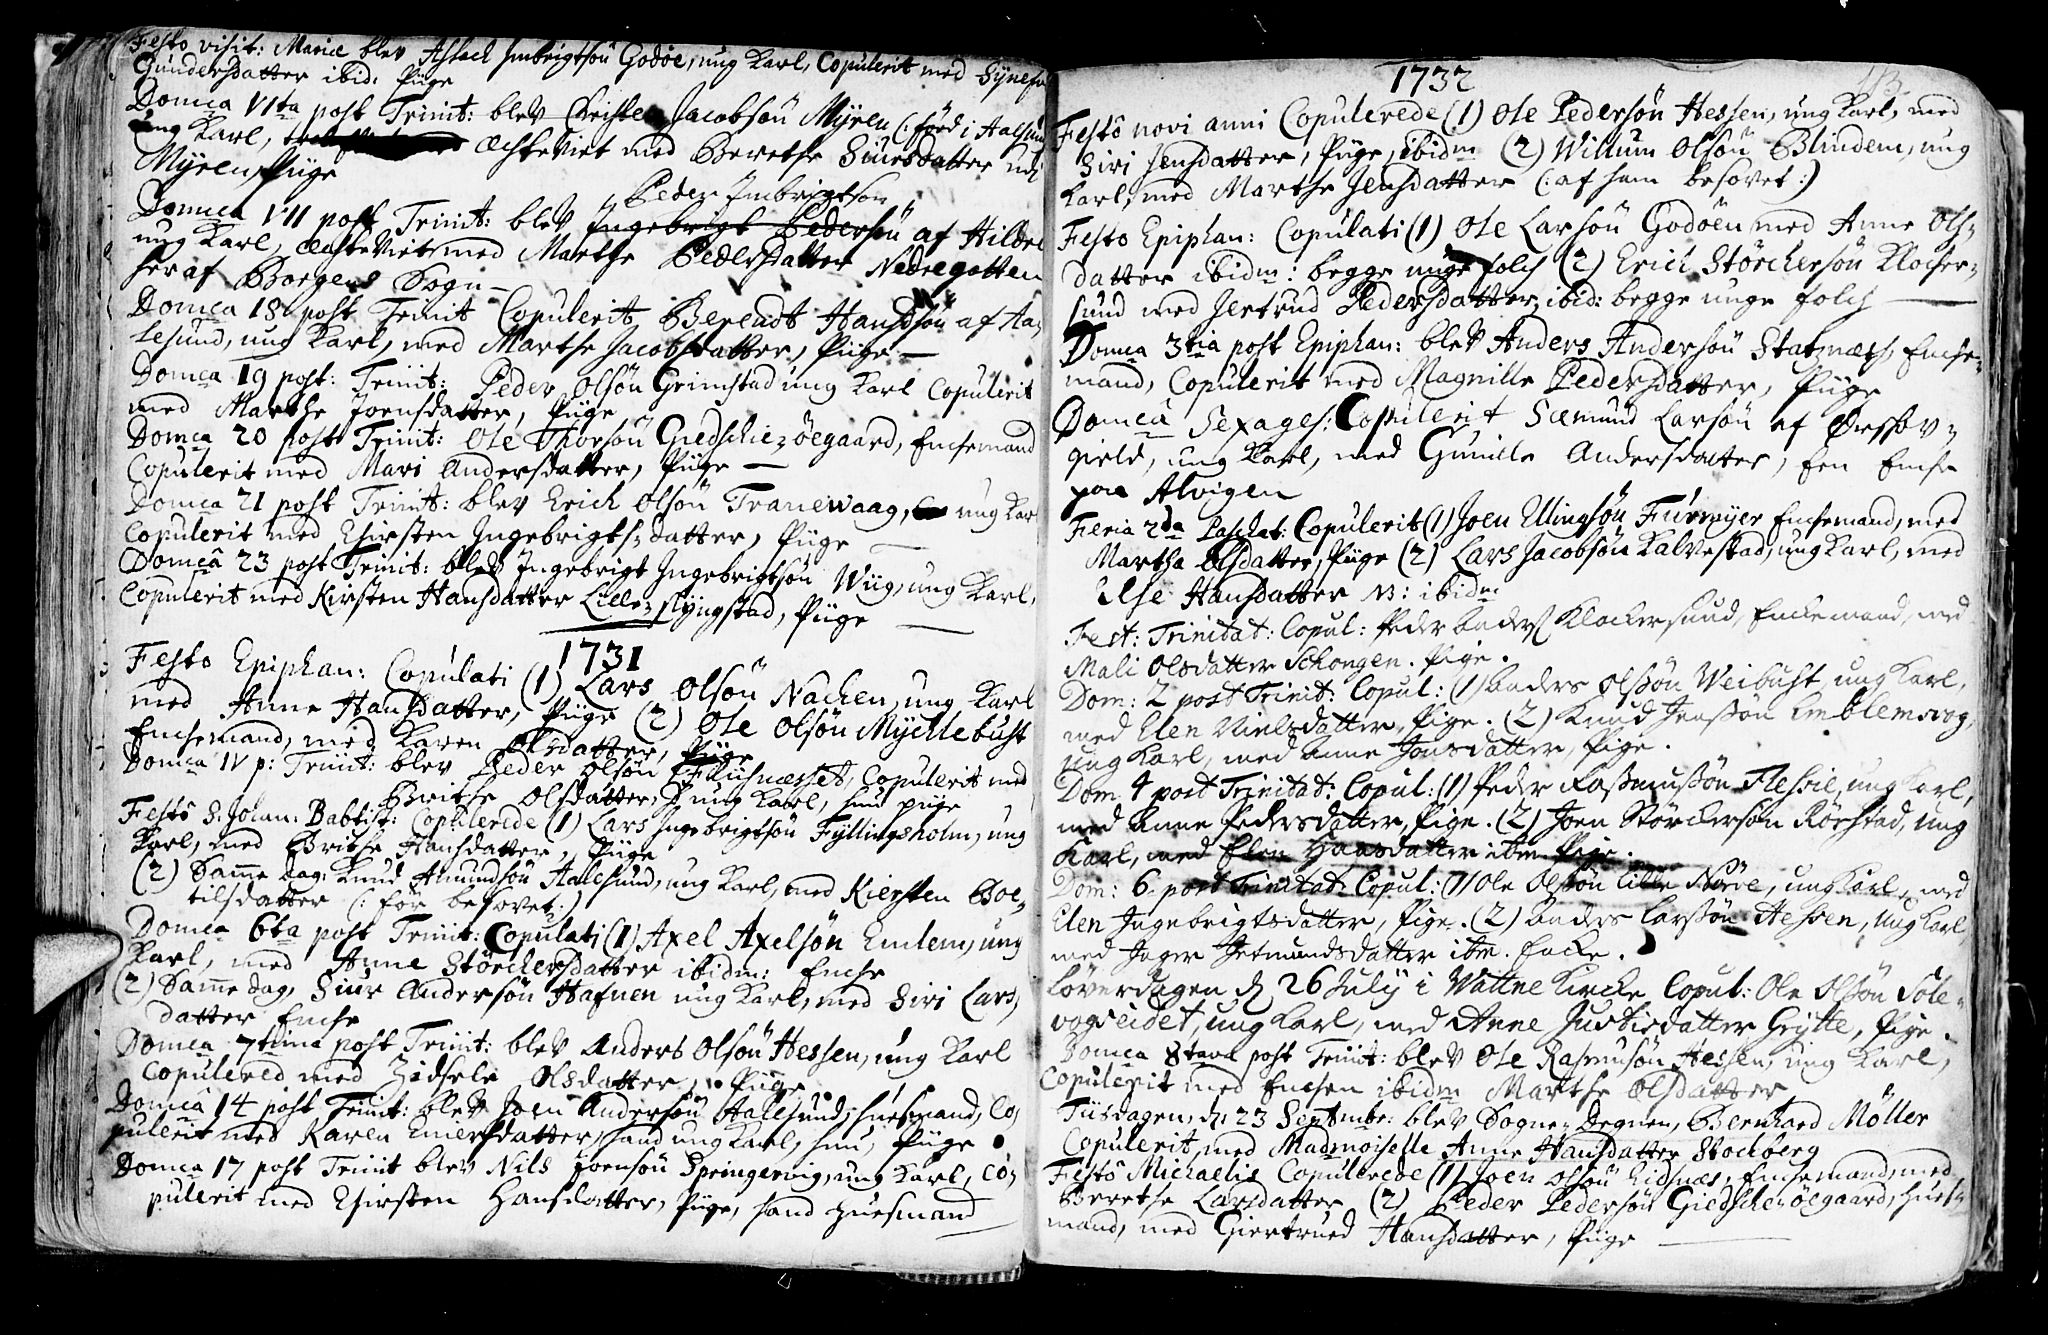 Festo visit: Mariæ blev Aslach Imbrigtsøn Godøe, ung Karl, Copulerit med Synefve
Gundersdatter ibid: Piige
Domca VIta post Trinit: blev Christen Jacobsøn Myren (: fød i Aalesund
ung Karl, ægteviet med Berethe Siursdatter udi
Myren, Piige
Peder Imbrigtsøn
Domca VII post Trinit: blev Ingebrigt Pedersøn af Hildre
ung Karl, ægteviet med Marthe Pedersdatter Nedregotten
her af Borgens Sogn
Domca 18 post Trinit Copulerit Berendt Handsøn af Aa-
lesund, ung Karl, med Marthe Jacobsdatter, Piige
Domca 19 post: Trinit: Peder Olsøn Grimstad ung Karl Copulerit
med Marthe Joensdatter, Piige
Domca 20 post Trinit: Ole Thorsøn Giedschie-øegaard, Enchemand
Copulerit med Mari Andersdatter, Piige
Domca 21 post Trinit: blev Erich Olsøn Tranewaag, ung Karl
Copulerit med Chirsten Ingebrigts-datter, Piige
Domcâ 23 post Trinit: blev Ingebrigt Ingebrigtsøn Wiig, ung Karl,
Copulerit med Kirsten Hansdatter Lille-Slyngstad, Piige
1731
Festo Epiphan: Copulati (1) Lars Olsøn Nachen, ung Karl
med Anne Hansdatter, Piige (2) Ole Olsøn Mychlebust
Enchemand, med Karen Olsdatter, Piige
Domca IV p: Trinit: blev Peder Olsøn Fliisnæsset, Copulerit med
Brithe Olsdatter, ung Karl, hun piige
Festô S: Johan: Babtist: Copulerede (1) Lars Ingebrigtsøn Fyllingsholm, ung
Karl, med Brithe Hansdatter, Piige
(2) Samme dag, Knud Amundsøn Aalesund, ung Karl, med Kiersten Boe-
tilsdatter (: før besovet :)
Domca 6ta post Trinit: Copulati (1) Axel Axelsøn Emlem, ung
Karl, med Anne Störchersdatter ibidm: Enche
(2) Samme dag, Siur Andersøn Hafnen ung Karl, med Siri Lars-
datter Enche
Domca 7tima post Trinit: blev Anders Olsøn Hessen, ung Karl
Copulered med Zidsele Olsdatter, Piige
Domcâ 14 post Trinit: blev Joen Andersøn Aalesund, huusmand, Co-
pulerit med Karen Einersdatter, hand ung Karl, hun, Piige
Domca 17 post Trinit blev Nils Joensøn Springervig, ung Karl, Co-
pulerit med Chirsten Hansdatter, Piige, hand huusmand
1732
Festô novi anni Copulerede (1) Ole Pedersøn Hessen, ung Karl, med
Siri Jensdatter, Piige, ibidm (2) Willum Olsøn Blindem, ung
Karl, med Marthe Jensdatter (: af ham besovet :)
Festo Epiphan: Copulati (1) Ole Larsøn Godöen med Anne Ols-
datter ibidm: begge unge folch (2) Erich Störchersøn Klocher-
sund med Jertrud Pedersdatter, ibid: begge unge folch
Domca 3tia post Epiphan: blev Anders Andersøn Statnæss, Enche-
mand, Copulerit med Magnille Pedersdatter, Piige
Domcâ Sexages: Copulerit Sæmund Larsøn af Ørschov-
gield, ung Karl, med Gunille Andersdatter, Een Enche
paa Alvigen
Feria 2da Paschat: Copulerit (1) Joen Ellingsøn Furmyer Enchemand, med
Marthe Olsdatter, Piige (2) Lars Jacobsøn Kalvestad, ung Karl, med
Else Hansdatter NB: ibidm
Fest: Trinitat: Copul: Peder Anders Klockersund, Enckemand, med
Mali Olsdatter Schongen. Pige.
Dom: 2 post Trinit: Copul: (1) Anders Olssøn Weibust, ung Karl,
med Elen Nielsdatter, Pige. (2) Knud Jenssøn Emblemsvog,
ung Karl, med Anne Jonsdatter, Pige.
Dom 4 post Trinitat: Copul: (1) Peder Rassmussøn Flessie, ung Karl,
med Anne Pedersdatter, Pige. (2) Joen Störckersøn Rörstad, ung
Karl, med Elen Hansdatter ibm. Pige.
Dom: 6 post Trinitat: Copul: (1) Ole Olssøn Lille Nörve, ung Karl, med
Elen Ingebrigtsdatter, Pige. (2) Anders Larssøn Aessen, ung Karl,
med Inger Jetmundsdatter ibm. Encke.
Löverdagen d 26 July i Wattne Kircke Copul: Ole Olssøn Söle-
vogseidet, ung Karl, med Anne Justisdatter Grytte, Pige.
Domca 8tava post Trinit: blev Ole Rasmusøn Hessen, ung Karl,
Copulerit med Enchen ibidm Marthe Olsdatter
Tiisdagen, d: 23 Septmbr: blev Sogne-Degnen, Bernhard Möller
Copulerit med Madmoiselle Anne Hansdatter Stochberg
Festô Michaelis Copulerede (1) Joen Olsøn Eidsnæs, Enchemand, med
Berethe Larsdatter (2) Peder Pedersøn Giedsche-øegaard, huus-
mand, med Giertrued Hansdatter, Piige